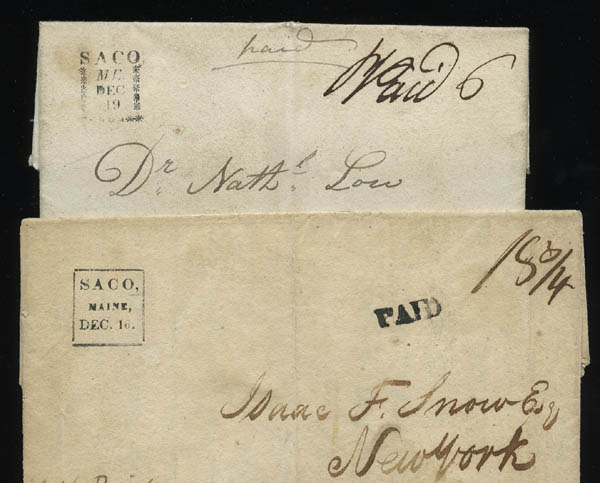 SACO,
ME.
DEC
19
paid
Paid 6
Dr Nathl Low
SACO,
MAINE,
DEC. 16.
PAID
18 3/4
Isaac F. Snow Esq
New York